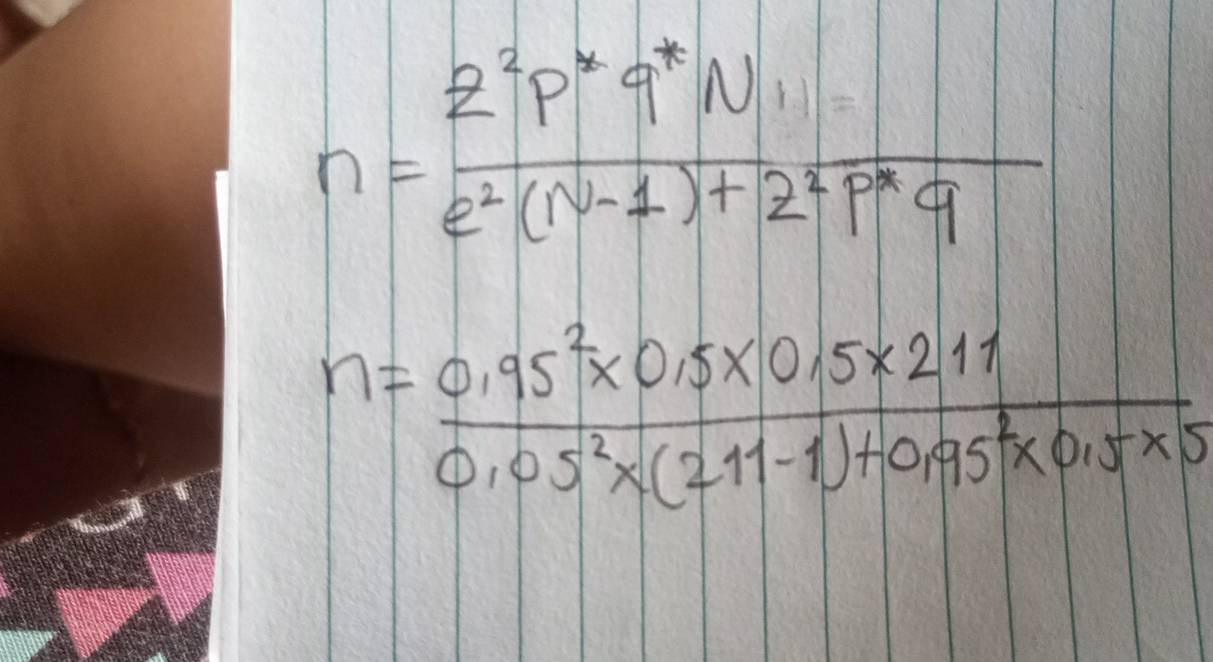 z²p*q*N
n = ―――――――
e²(N-1)+z²p*q
n= 0,95²x0,5x0,5x211
―――――――
0,05²x(211-1)+0,95²x0,5x5